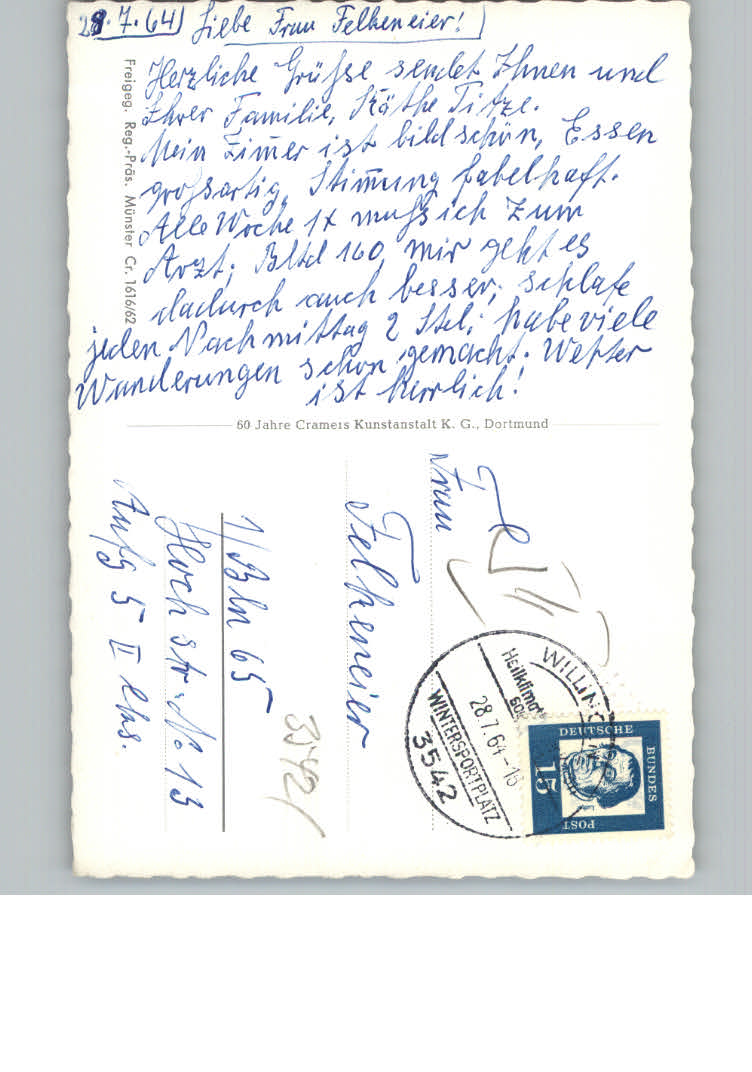 28.7.64 Liebe Frau Felkeneier!
Herzliche Grüsse sendet Ihnen und
Ihrer Familie, Käthe Titze.
Mein Zim̅er ist bildschön, Essen
grossartig, Stim̅ung fabelhaft.
Alle Woche 1x muss ich zum
Arzt; Bltd 160, mir geht es
dadurch auch besser; schlafe
jeden Nachmittag 2 Std; habe viele
Wanderungen schon gemacht. Wetter
ist herrlich!
Freigeg. Reg.-Präs. Münster Cr. 1616/62
60 Jahre Cramers Kunstanstalt K. G., Dortmund
Frau
Felkeneier
1/Bln 65
Hochstr. No 13
Aufg 5 II lks.
3542/
WILLING
Heilklima
28.7.64-
WINTERSPORTPLATZ
3542
DEUTSCHE
BUNDES
POST
15